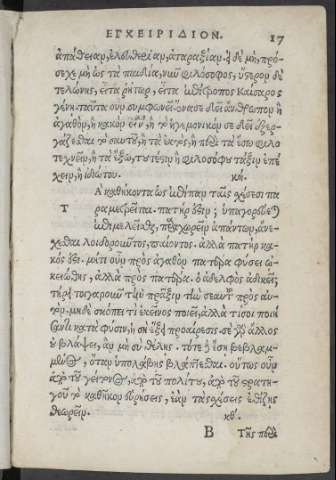 ΕΓΧΕΙΡΙΔΙΟΝ. 17
ἀπάθειαν, ἐλευθερίαν, ἀταραξίαν. εἰ δὲ μὴ, πρό-
σεχε μὴ ὡς τὰ παιδία, νῦν φιλόσοφος, ὕστερον δὲ
τελώνης, εἶτα ῥήτωρ, εἶτα ἐπίτροπος καίσαρος
γένῃ. ταῦτα οὐ συμφωνεῖ. ἕνα σε δεῖ ἄνθρωπον ἢ
ἀγαθὸν, ἢ κακὸν εἶναι, ἢ τὸ ἡγεμονικόν σε δεῖ ἐξερ-
γάζεσθαι τὸ σαυτοῦ, ἢ τὰ ἐκτός, ἢ περὶ τὰ ἔσω φιλο
τεχνεῖν, ἢ τὰ ἔξω, τουτέστιν ἢ φιλοσόφου τάξιν ἐπέ
χειν, ἢ ἰδιώτου. κή.
Τ Α καθήκοντα ὡς ἐπίπαν ταῖς σχέσεσι πα
ραμετρεῖται. πατήρ ἐστιν; ὑπαγορεύεται
ἐπιμελεῖσθαι, παραχωρεῖν ἁπάντων, ἀνέ-
χεσθαι λοιδοροῦντος, παίοντος. ἀλλὰ πατὴρ κα-
κός ἐστι. μήτι οὖν πρὸς ἀγαθὸν πατέρα φύσει ᾠ-
κειώθης, ἀλλὰ πρὸς πατέρα. ὁ ἀδελφὸς ἀδικεῖ;
τήρει τοιγαροῦν τὴν τάξιν τὴν σεαυτοῦ πρὸς αὐ-
τόν. μηδὲ σκόπει τί ἐκεῖνος ποιεῖ, ἀλλὰ τί σοι ποιή
σαντι κατὰ φύσιν, ἡ σὴ ἕξει προαίρεσις. σὲ γὰρ ἄλλος
οὐ βλάψει, ἂν μὴ σὺ θέλῃς. τότε δὲ ἔσῃ βεβλαμ-
μένος, ὅταν ὑπολάβῃς βλάπτεσθαι. οὕτως οὖν
ἀπὸ τοῦ γείτονος, ἀπὸ τοῦ πολίτου, ἀπὸ τοῦ στρατη-
γοῦ τὸ καθῆκον εὑρήσεις, ἐὰν τὰς σχέσεις ἐθίζῃς
θεωρεῖν. κθ΄.
Β Τῆς περὶ